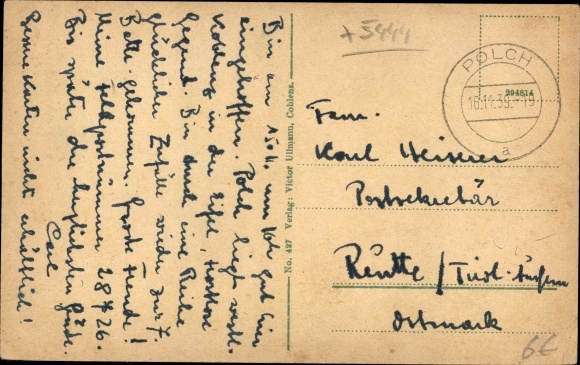 Bin am 15.11. um 16h gut hier
eingetroffen. Polch liegt westl.
Koblenz in der Eifel,
Gegend. Bin durch eine Reihe
glücklicher Zufälle wieder zur 7.
Batt. gekommen. Große Freude!
Meine Feldpostnummer 28426.
Bis später die herzlichsten Grüße.
Carl
Seine Karten nicht erhältlich!
No. 427 Verlag: Victor Ullmann, Coblenz.
+5444
POLCH
16.11.39.-19
a
294814
Fam.
Karl
Postsekretär
Reutte / Tirol
Ostmark
6€